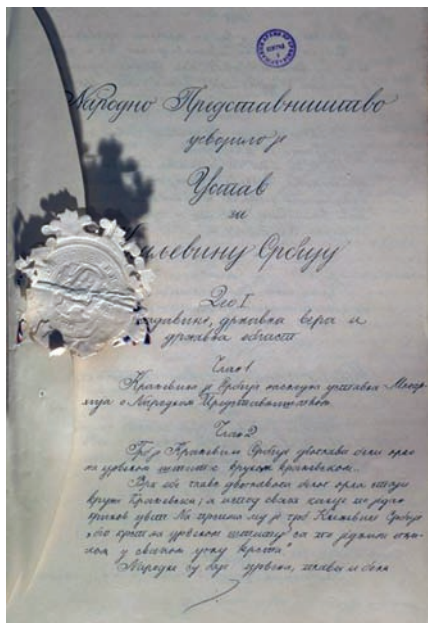 Народно Представништво
усвојило је
Устав
за
Краљевину Србију
Део I.
државна вера и
државна област
Члан 1
Краљевина је Србија наследна уставна Монар-
хија с Народним Представништвом
Члан 2
Грб је Краљевине Србије двоглави бели орао
на црвеном штиту с круном краљевском.
Врх обе главе двоглавога белог орла стоји
круна Краљевска; а испод сваке канџе по један
кринов цвет. На прсима му је грб Књажевине Србије
бео крст на црвеном штиту са по једним огњи-
лом у сваком углу крста"
Народне су боје: црвена, плава и бела